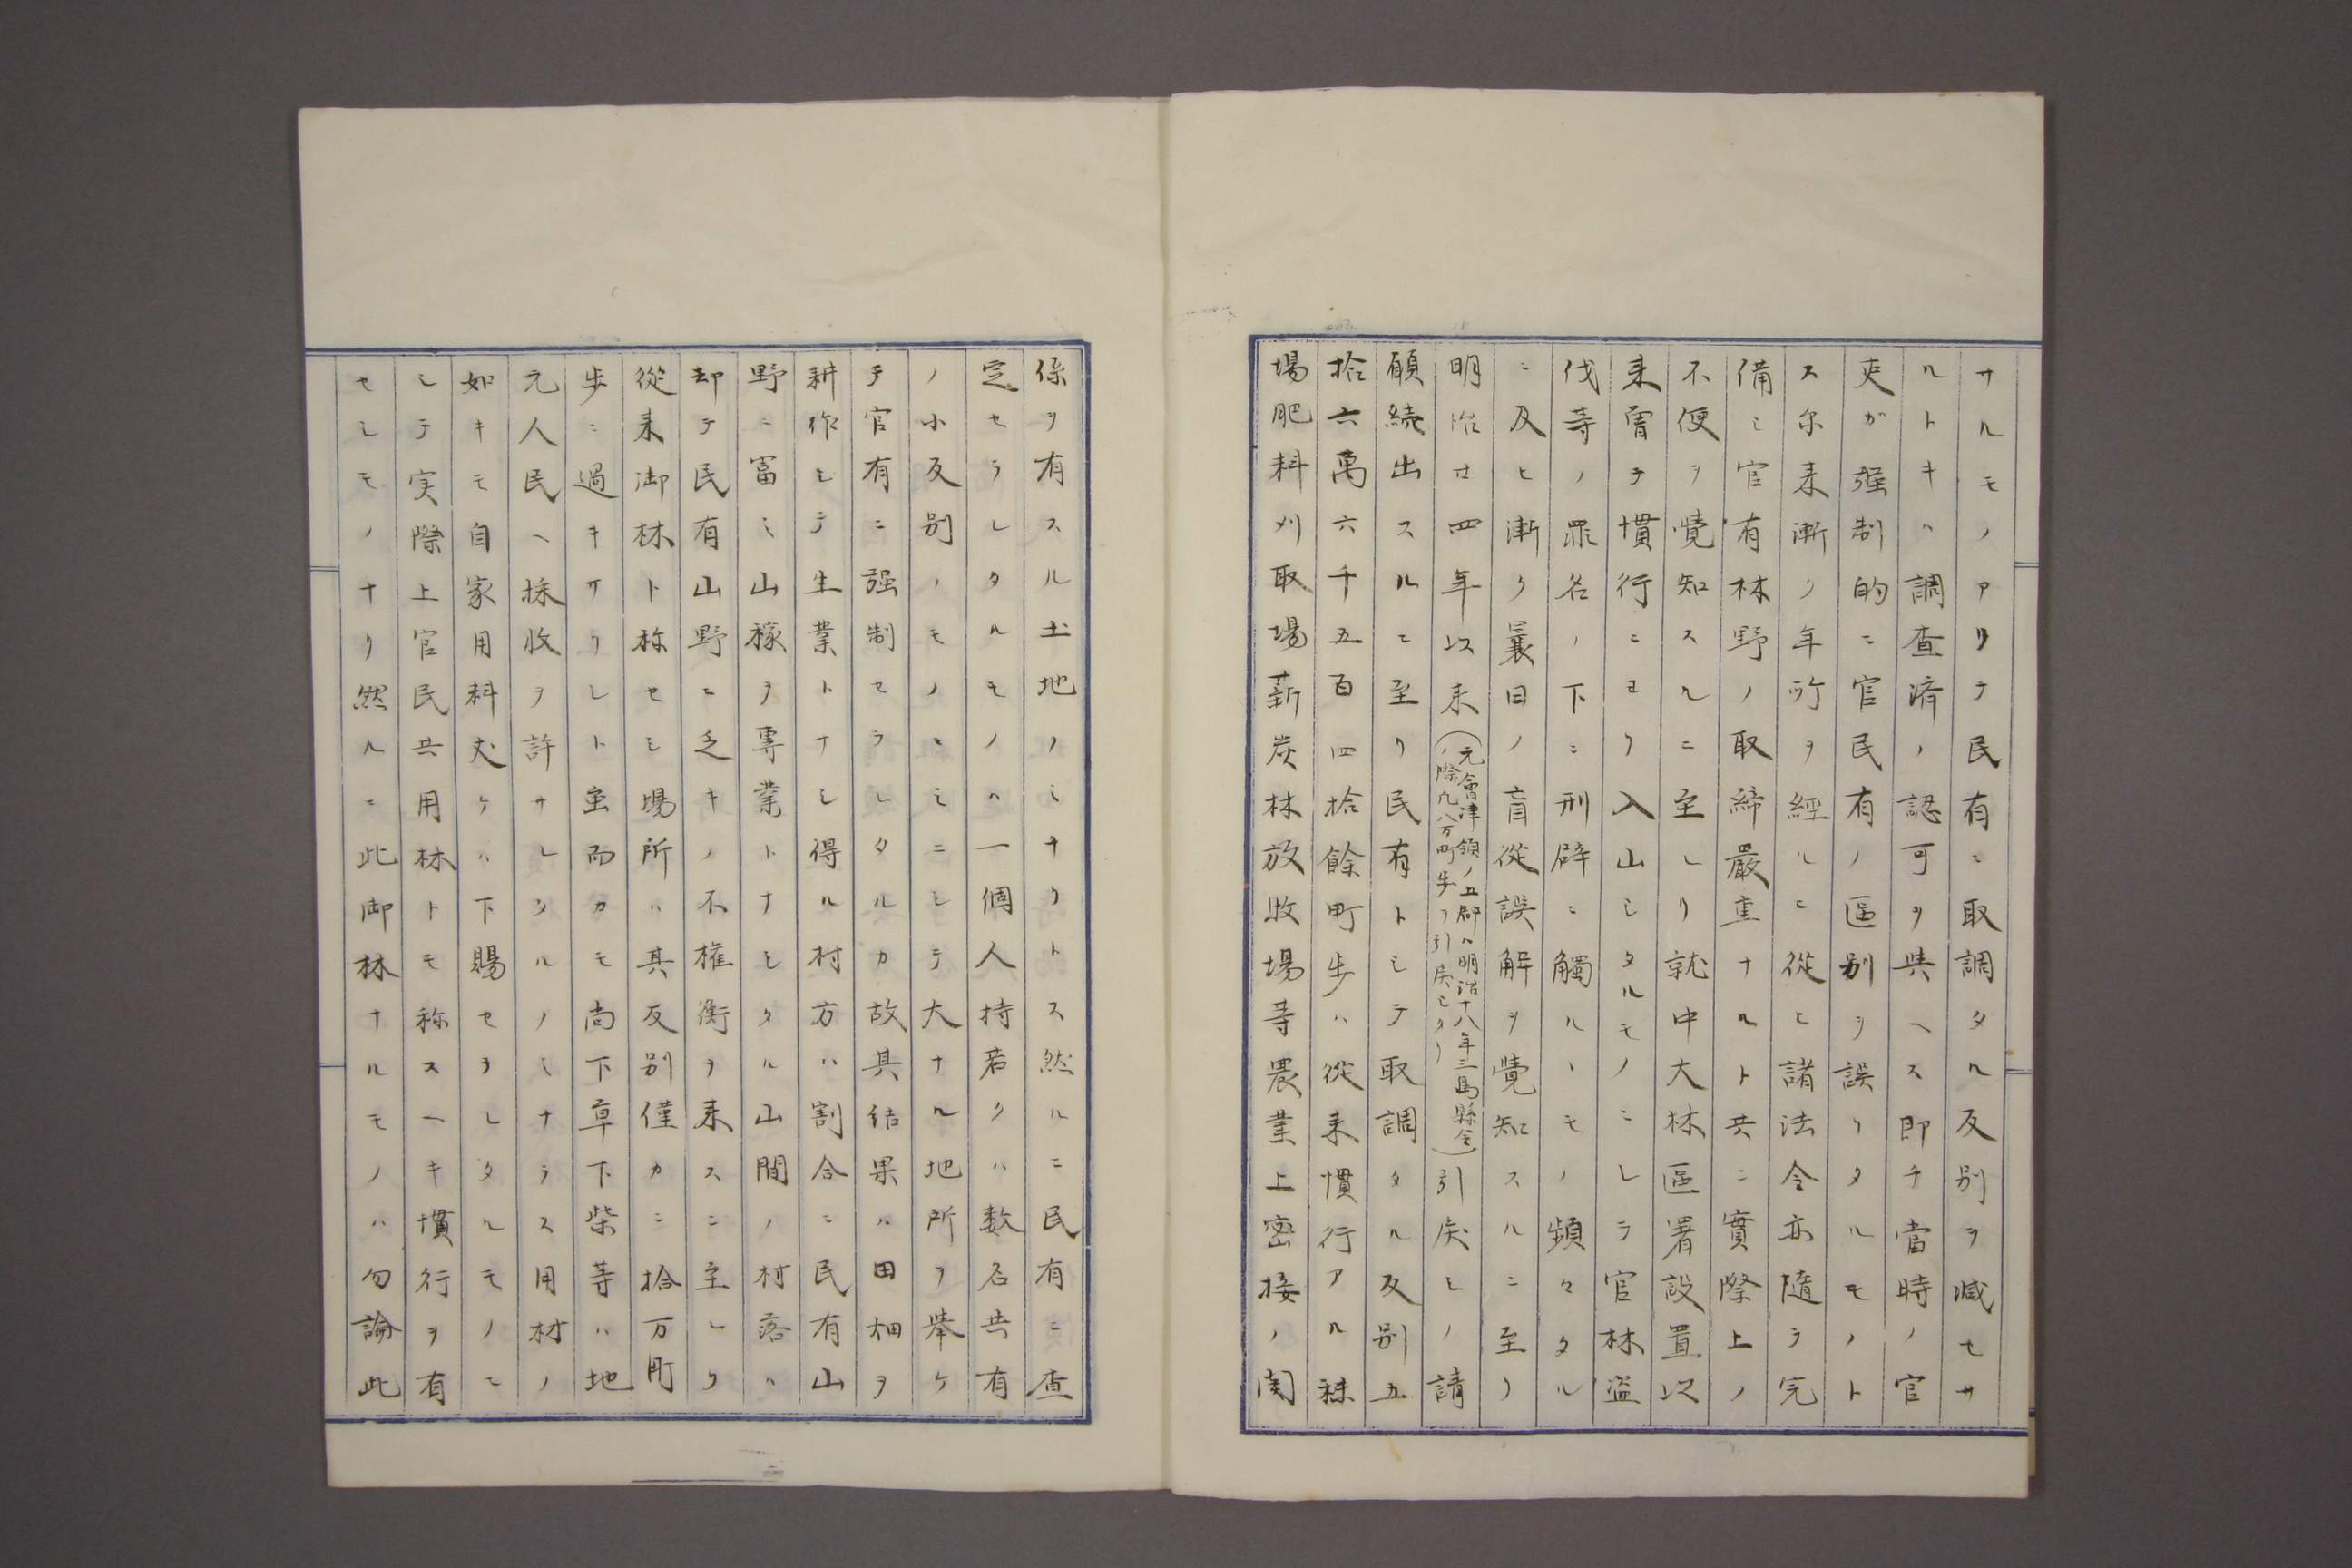 サルモノアリテ民有ニ取調タル反別ヲ減セサ
ルトキハ調査済ノ認可ヲ與ヘス即チ當時ノ官
吏ガ强制的ニ官民有ノ區别ヲ誤リタルモノト
ス尓来漸ク年所ヲ經ルニ從ヒ諸法令亦隨テ完
備シ官有林野ノ取締嚴重ナルト共ニ實際上ノ
不便ヲ覺知スルニ至レリ就中大林區署設置以
来嘗テ慣行ニヨリ入山シタルモノニシテ官林盗
伐等ノ罪名ノ下ニ刑辟ニ觸ルヽモノ頻々タル
ニ及ヒ漸ク曩日ノ盲從誤解ヲ覺知スルニ至リ
明治廿四年以来(元會津領ノ五郡ハ明治十八年三島縣令ノ際凡八万町歩ヲ引戻セリ)引戻シノ請
願続出スルニ至リ民有トシテ取調タル反別五
拾六萬六千五百四拾餘町歩ハ從来慣行アル秣
場肥料刈取場薪炭林放牧場等農業上密接ノ関
係ヲ有スル土地ノミナリトス然ルニ民有ニ査
定セラレタルモノハ一個人持若クハ数名共有
ノ小反别ノモノヽミニシテ大ナル地所ヲ挙ケ
テ官有ニ强制セラレタルカ故其結果ハ田畑ヲ
耕作シテ生業トナシ得ル村方ハ割合ニ民有山
野ニ富ミ山稼ヲ專業トナシタル山間ノ村落ハ
却テ民有山野ニ乏キノ不権衡ヲ来スニ至レリ
從来御林ト称セシ場所ハ其反别僅カニ拾万町
歩ニ過キサリシト至而カモ尚下草下柴等ハ地
元人民ヘ採收ヲ許サレタルノミナラス用材ノ
如キモ自家用料丈ケハ下賜セラレタルモノニ
シテ実際上官民共用林トモ称スヘキ慣行ヲ有
セシモノナリ然ルニ此御林ナルモノハ勿論此